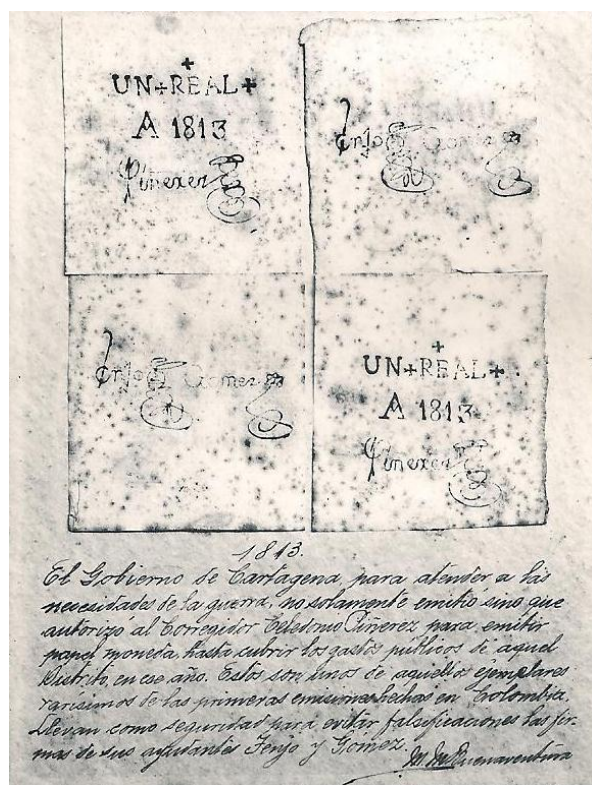 +
UN+REAL+
A 1813
Piñerez
Fenjo Gomez
Fenjo Gomez
+
UN+REAL+
A 1813
Piñerez
1813.
El Gobierno de Cartagena, para atender a las
necesidades de la guerra, no solamente emitió sino que
autorizó al Corregidor Celedonio Piñerez para emitir
papel moneda, hasta cubrir los gastos públicos de aquel
Distrito, en ese año. Estos son unos de aquellos ejemplares
rarisimos de las primeras emisiones hechas en Colombia
Llevan como seguridad para evitar falsificaciones las fir-
mas de sus ayudantes Fenjo y Gómez.
M. M. Buenaventura